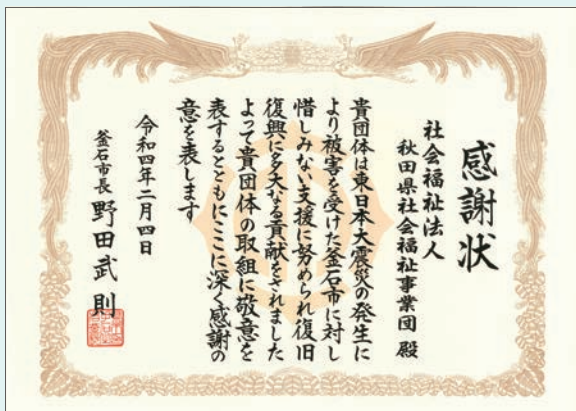 感謝状
社会福祉法人
秋田県社会福祉事業団 殿
貴団体は東日本大震災の発生に
より被害を受けた釜石市に対し
惜しみない支援に努められ復旧
復興に多大なる貢献をされました
よって貴団体の取組に敬意を
表するとともにここに深く感謝の
意を表します
令和四年二月四日
釜石市長 野田武則